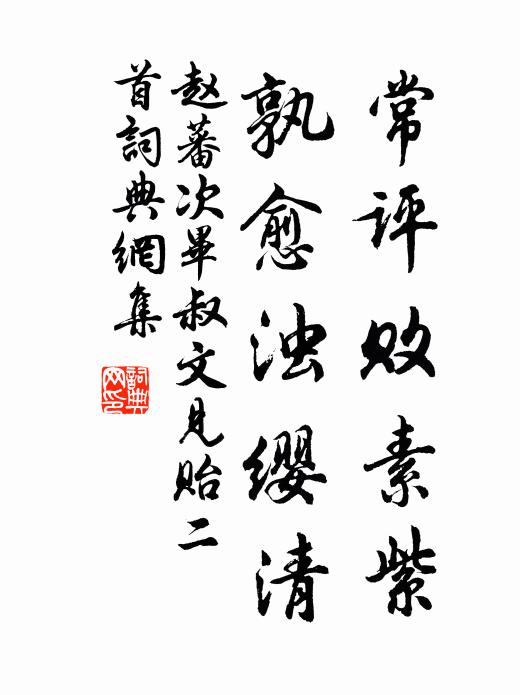 常评败素紫
孰愈浊缨清
赵蕃次畢叔文见贻二
首詞典網集
詞典
网印